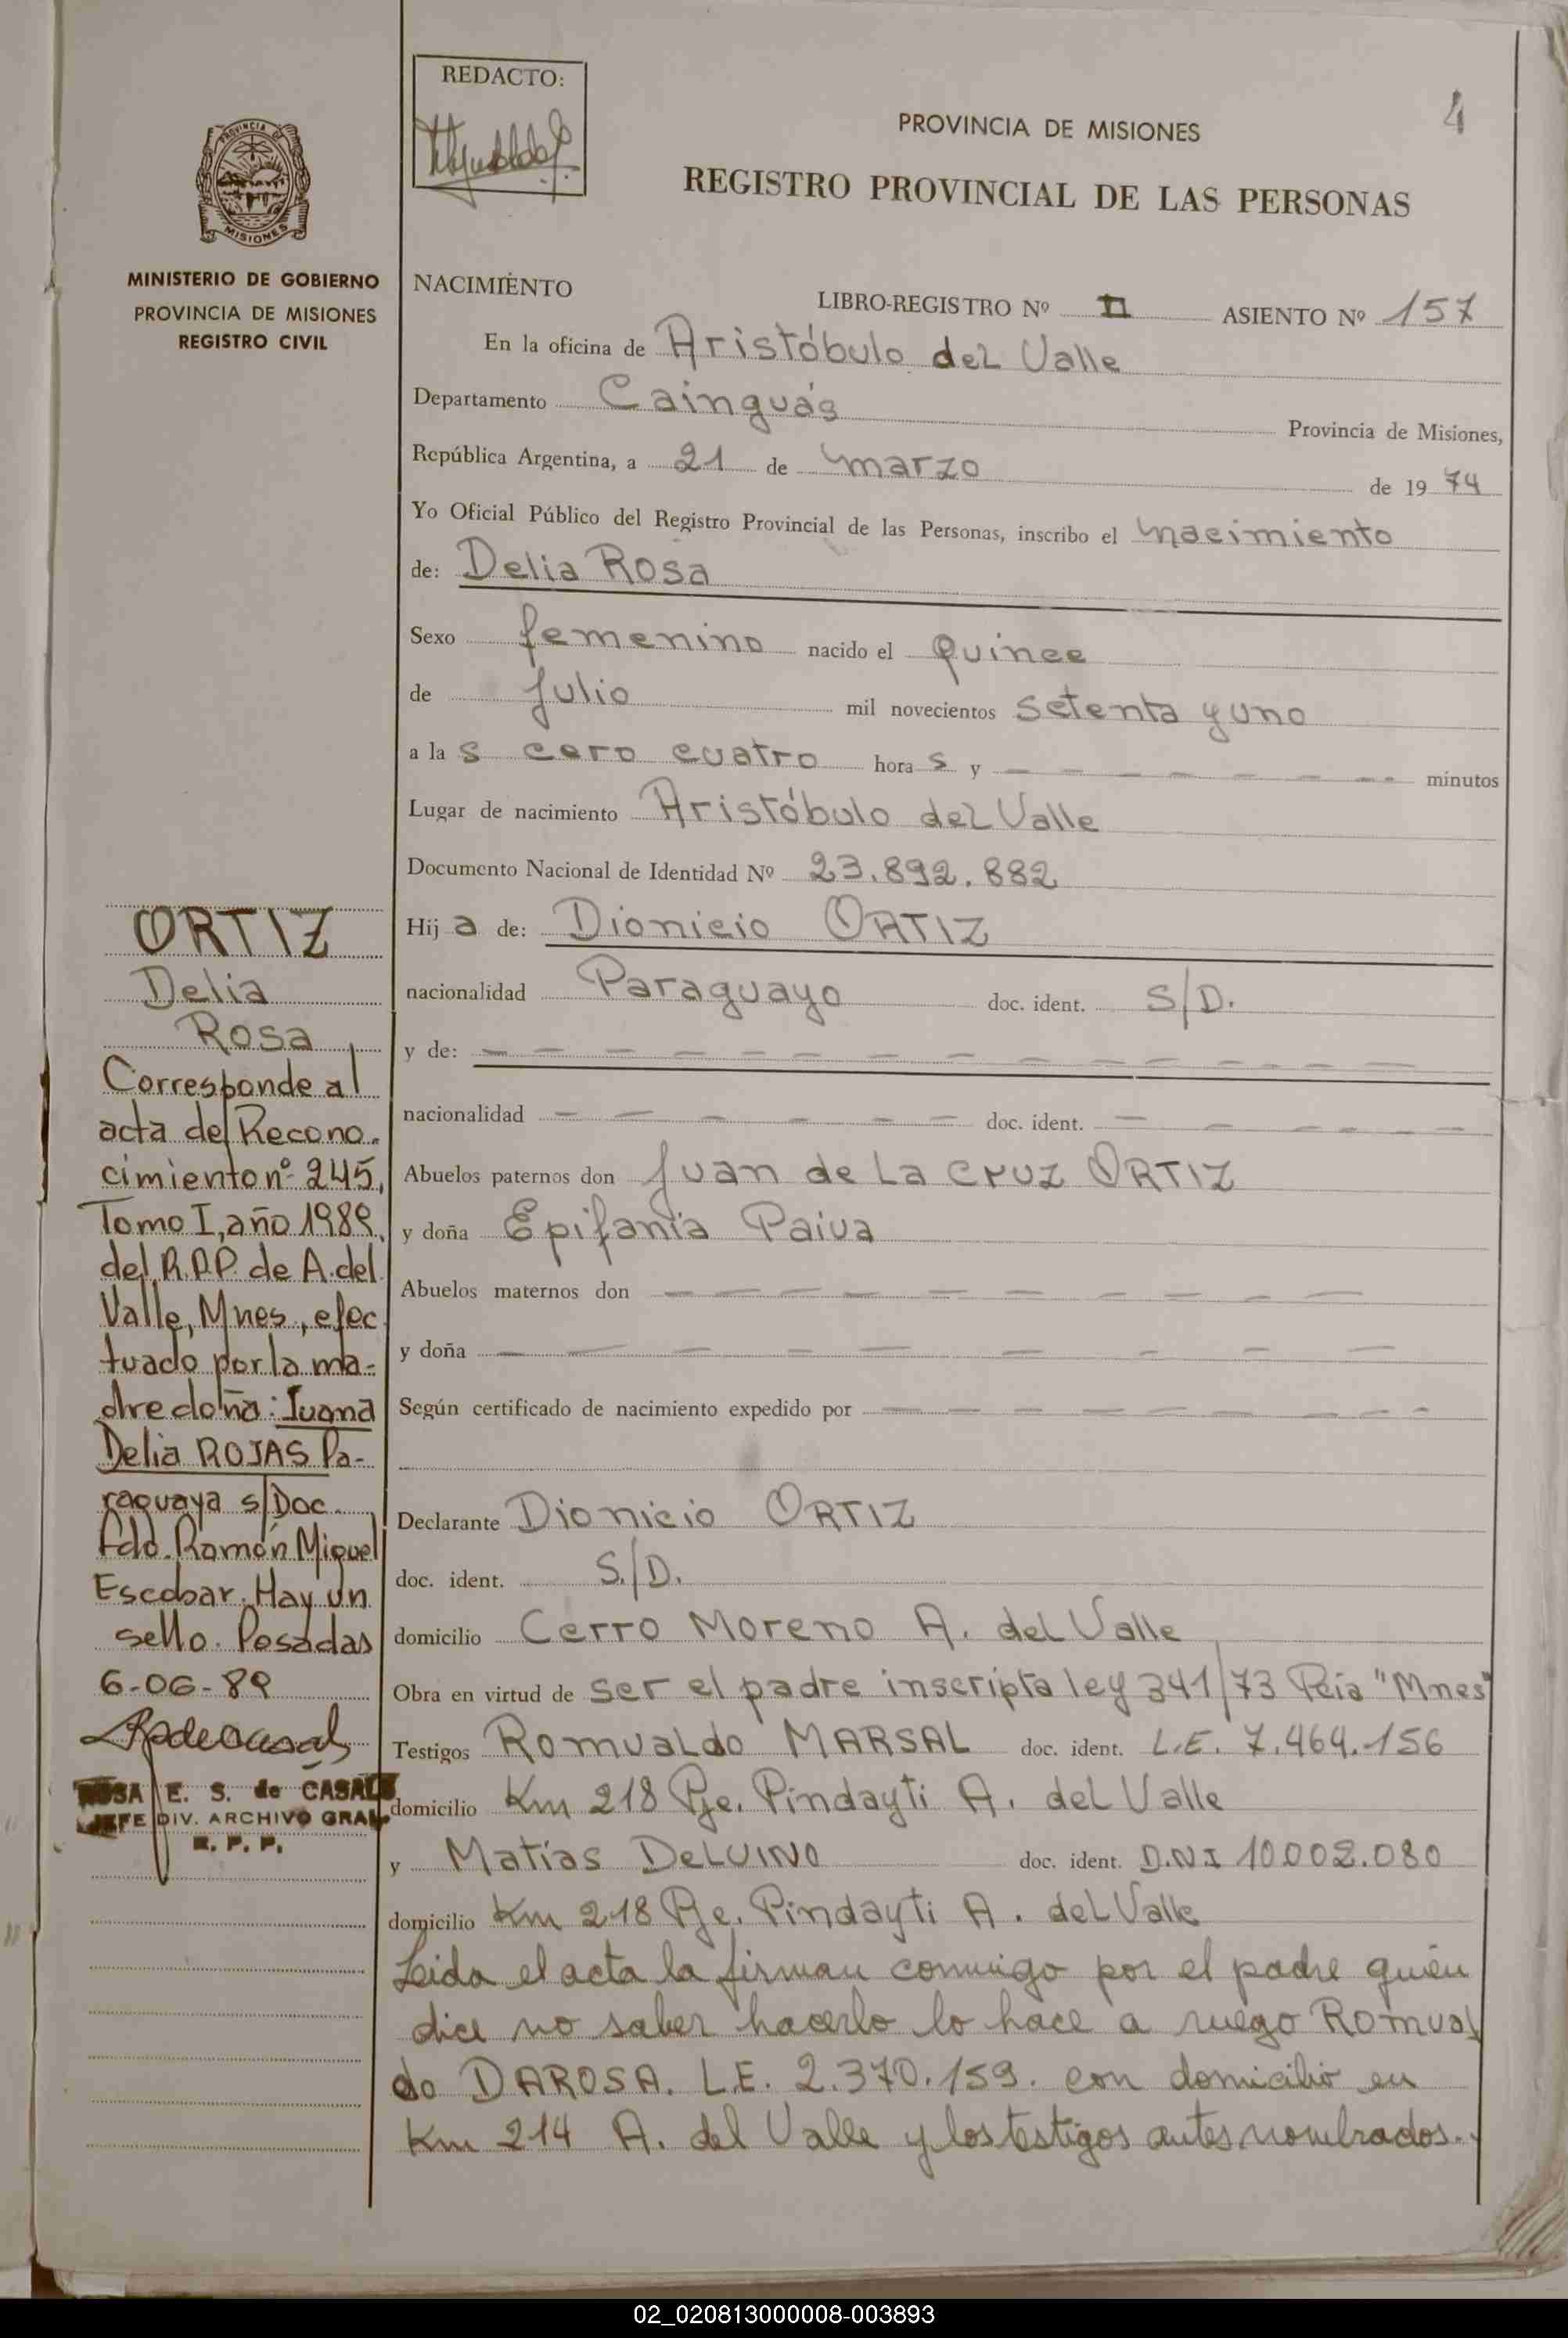 REDACTO:
4
PROVINCIA DE MISIONES
REGISTRO PROVINCIAL DE LAS PERSONAS
PROVINCIA DE
MISIONES
MINISTERIO DE GOBIERNO
PROVINCIA DE MISIONES
REGISTRO CIVIL
NACIMIENTO LIBRO-REGISTRO Nº II ASIENTO Nº 157
En la oficina de Aristóbulo del Valle
Departamento Cainguás Provincia de Misiones,
República Argentina, a 21 de marzo de 19 74
Yo Oficial Público del Registro Provincial de las Personas, inscribo el nacimiento
de: Delia Rosa
Sexo femenino nacido el quince
de julio mil novecientos setenta y uno
a la s cero cuatro hora s y — — — — — — — minutos
Lugar de nacimiento Aristóbulo del Valle
Documento Nacional de Identidad Nº 23.892.882
Hij a de: Dionicio ORTIZ
nacionalidad Paraguayo doc. ident. S/D.
y de: — — — — — — — — — — — — —
nacionalidad — — — — — — doc. ident. — — — — — —
Abuelos paternos don Juan de La Cruz ORTIZ
y doña Epifania Paiva
Abuelos maternos don — — — — — — — — —
y doña — — — — — — — — —
Según certificado de nacimiento expedido por — — — — — — — — —
Declarante Dionicio ORTIZ
doc. ident. S./D.
domicilio Cerro Moreno A. del Valle
Obra en virtud de ser el padre inscripta ley 341/73 Pcia "Mnes"
Testigos Romualdo MARSAL doc. ident. L.E. 7.464.156
domicilio Km 218 Pje. Pindayti A. del Valle
y Matías DELVINO doc. ident. D.N.I 10.002.080
domicilio Km 218 Pje. Pindayti A. del Valle
Leida el acta la firman conmigo por el padre quién
dice no saber hacerlo lo hace a ruego Romual
do DAROSA. L.E. 2.370.159. con domicilio en
Km 214 A. del Valle y los testigos antes nombrados.
ORTIZ
Delia
Rosa
Corresponde al
acta de Recono.
cimiento nº 245,
Tomo I, año 1989,
del R.P.P. de A. del
Valle, Mnes., efec
tuado por la ma-
dre doña: Juana
Delia ROJAS Pa-
raguaya s/Doc.
Fdo. Ramón Miguel
Escobar. Hay un
sello. Posadas
6-06-89
ROSA E. S. de CASALS
JEFE DIV. ARCHIVO GRAL
R. P. P.
02_020813000008-003893